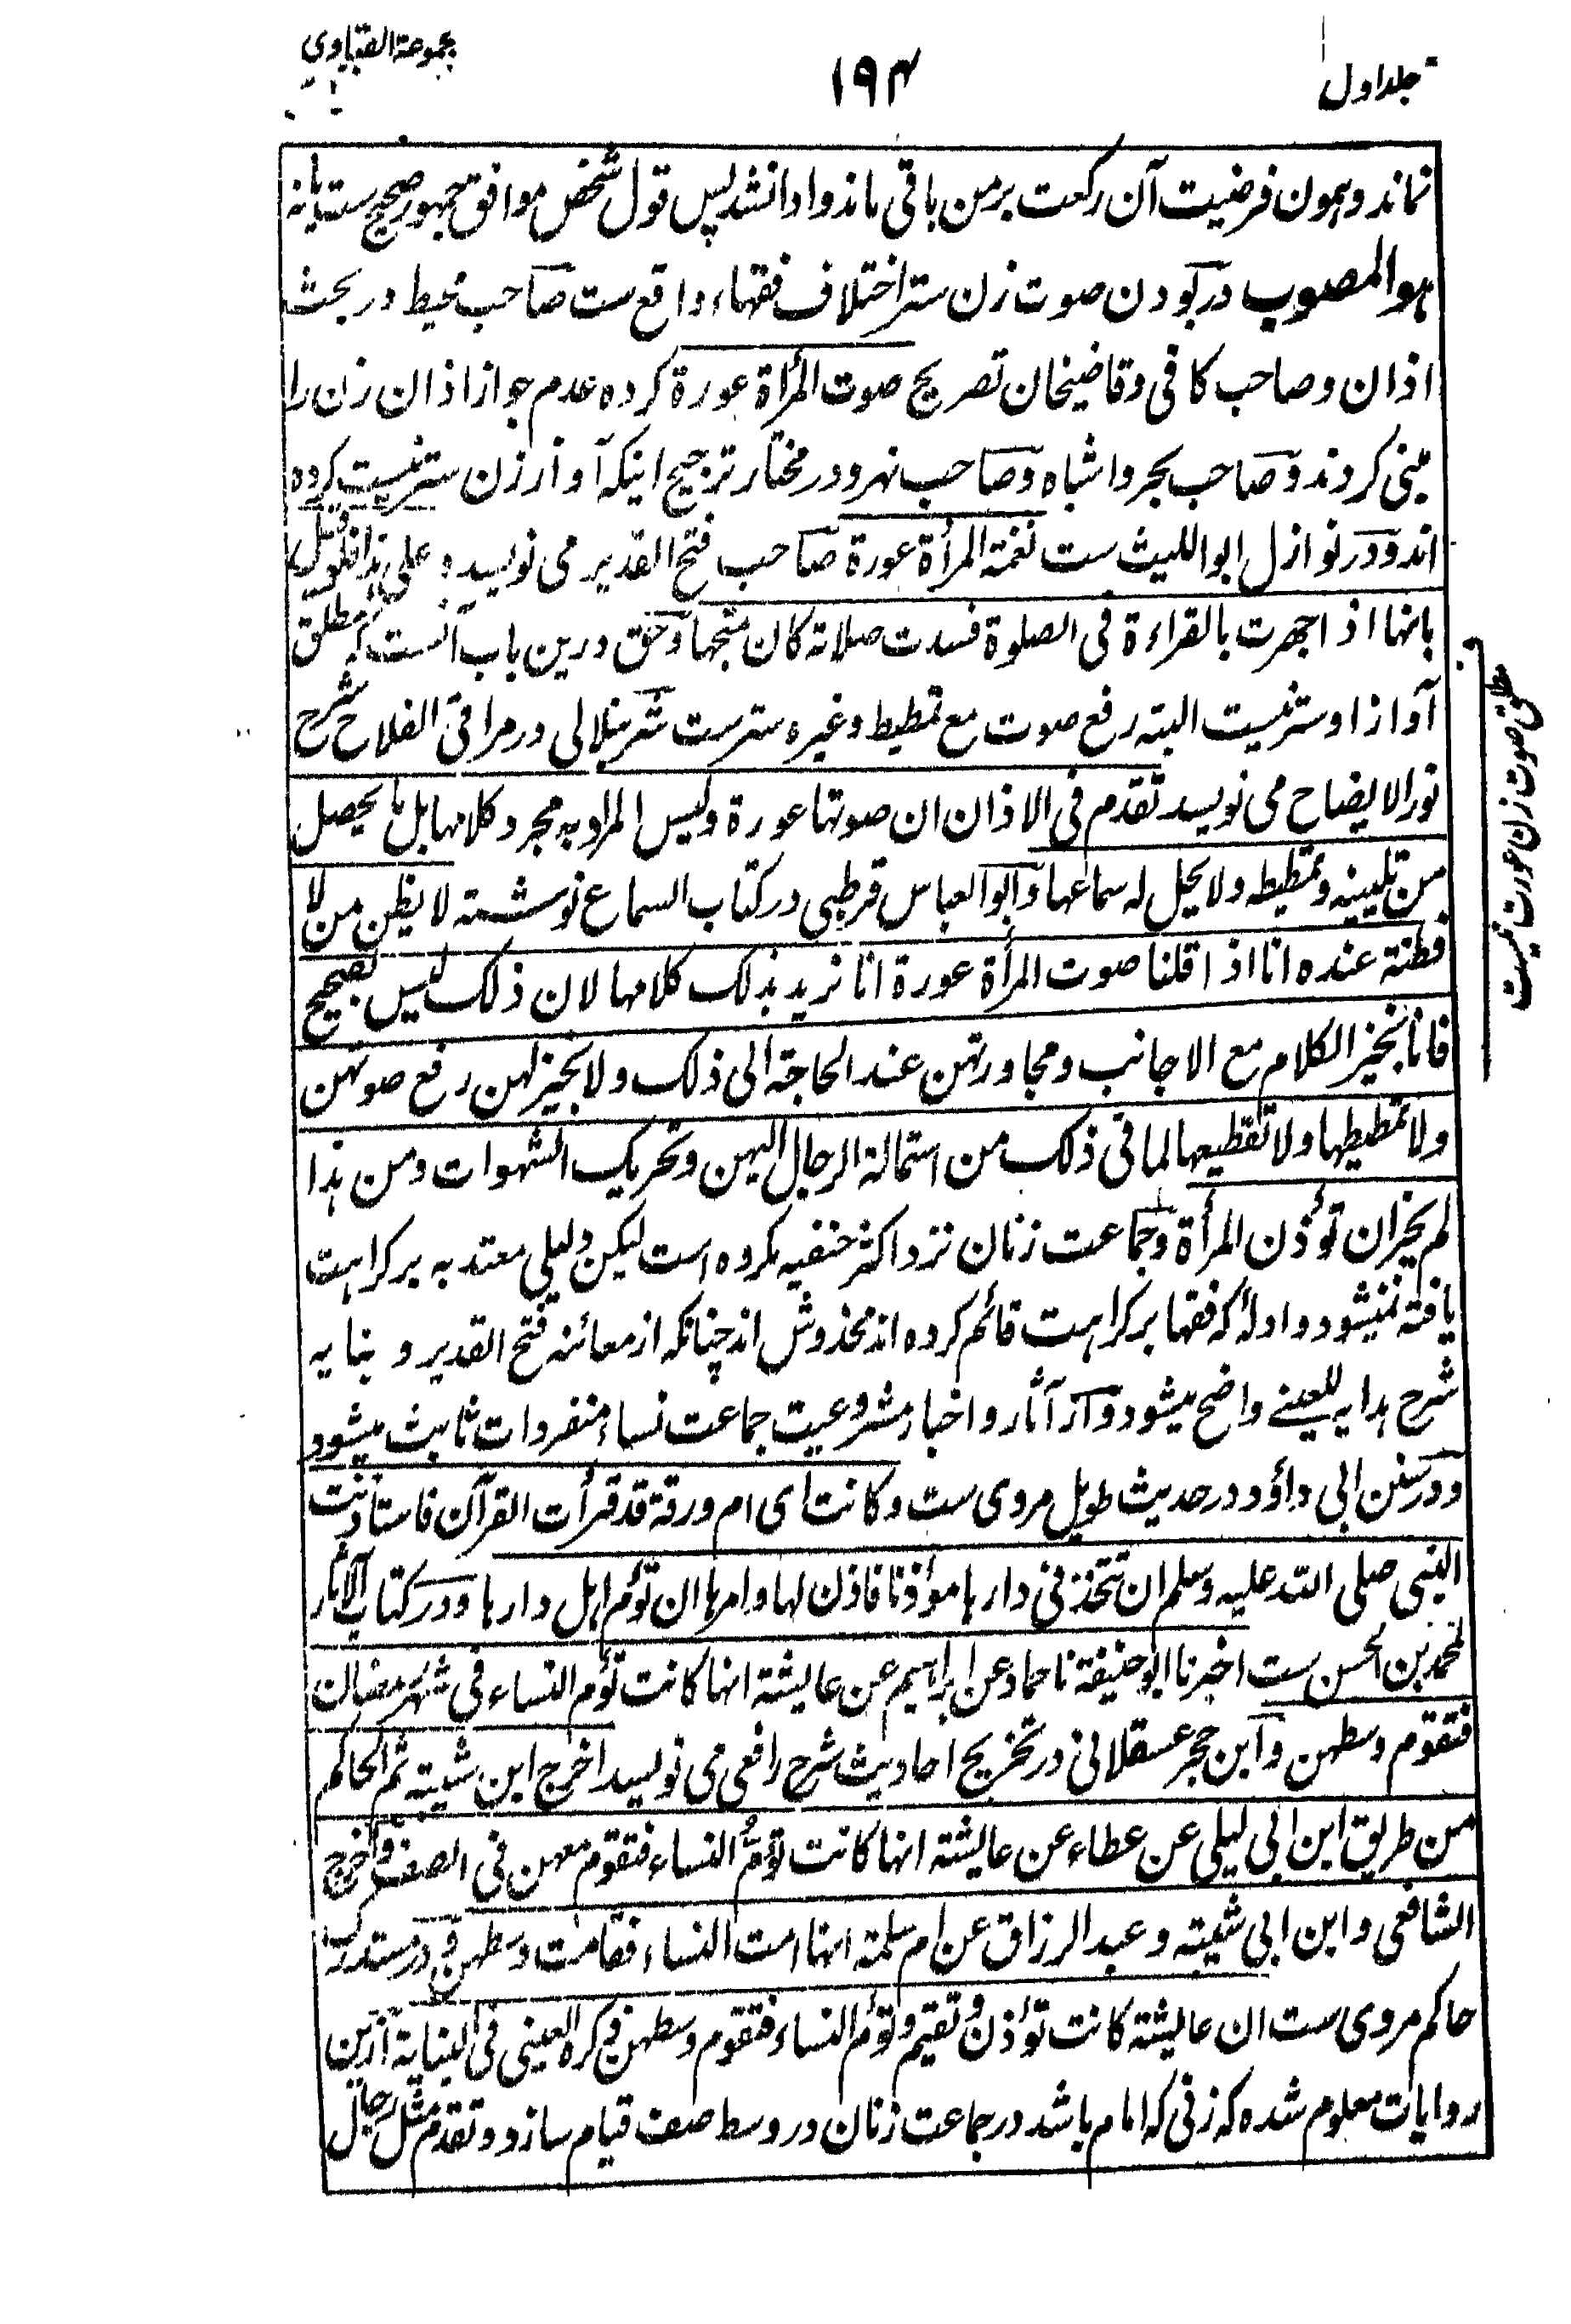 جلد اول
۱۹۴
مجموعة الفتاوی
نماند و ہمون فرضیت آن رکعت برمن باقی ماند و ادا نشد پس قول شخص موافق جمهور صحیح ست یا نہ
ہو المصوب در بودن صوت زن ستر اختلاف فقهاء واقع ست صاحب محیط در بحث
اذان و صاحب کافی و قاضیخان تصریح صوت المرأة عورة کرده عدم جواز اذان زن را
مبنی کردند و صاحب بحر و اشباه و صاحب نہر و در مختار ترجیح اینکہ آواز زن ستر نیست کرده
اند و در نوازل ابو اللیث ست نغمة المرأة عورة صاحب فتح القدیر می نویسد و علی ہذا فلو قیل
بانها اذا جهرت بالقراءة فی الصلوة فسدت صلاتہ کان متجها و حق درین باب آنست کہ مطلق
آواز او ستر نیست البتہ رفع صوت مع تمطیط و غیره ستر ست شرنبلالی در مراقی الفلاح شرح
نور الایضاح می نویسد تقدم فی الاذان ان صوتها عورة و لیس المراد بہ مجرد کلامها بل ما یحصل
من تلیینہ و تمطیطہ و لا یحل لہ سماعها و ابو العباس قرطبی در کتاب السماع نوشتہ لا یظن من لا
فطنة عنده انا اذا قلنا صوت المرأة عورة انا نرید بذلک کلامها لان ذلک لیس بصحیح
فانا نجیز الکلام مع الاجانب و محاورتهن عند الحاجة الی ذلک و لا نجیز لهن رفع صوتهن
و لا تمطیطها و لا تقطیعها لما فی ذلک من استمالة الرجال الیهن و تحریک الشهوات و من ہذا
لم یجز ان تؤذن المرأة و جماعت زنان نزد اکثر حنفیہ مکروه است لیکن دلیلی معتد بہ بر کراہت
یافتہ نمیشود و ادلہ کہ فقها بر کراہت قائم کرده اند مخدوش اند چنانکہ از معائنہ فتح القدیر و بنایہ
شرح ہدایہ للعینے واضح میشود و از آثار و اخبار مشروعیت جماعت نساء منفردات ثابت میشود
و در سنن ابی داؤد در حدیث طویل مروی ست و کانت ای ام ورقة قد قرأت القرآن فاستاذنت
النبی صلی اللہ علیہ وسلم ان تتخذ فی دارہا مؤذنا فاذن لها و امرہا ان تؤم اہل دارہا و در کتاب الآثار
لمحمد بن الحسن ست اخبرنا ابو حنیفة نا حماد عن ابراہیم عن عایشة انها کانت تؤم النساء فی شهر رمضان
فتقوم وسطهن و ابن حجر عسقلانی در تخریج احادیث شرح رافعی می نویسد اخرج ابن شیبة ثم الحاکم
من طریق ابن ابی لیلی عن عطاء عن عایشة انها کانت تؤم النساء فتقوم معهن فی الصف و اخرج
الشافعی و ابن ابی شیبة و عبد الرزاق عن ام سلمة انها امت النساء فقامت وسطهن و در مستدرک
حاکم مروی ست ان عایشة کانت تؤذن و تقیم و تؤم النساء فتقوم وسطهن ذکره العینی فی البنایة ازین
روایات معلوم شده کہ زنی کہ امام باشد در جماعت زنان در وسط صف قیام سازد و تقدم مثل رجال
مطلق صوت زن عورت نیست